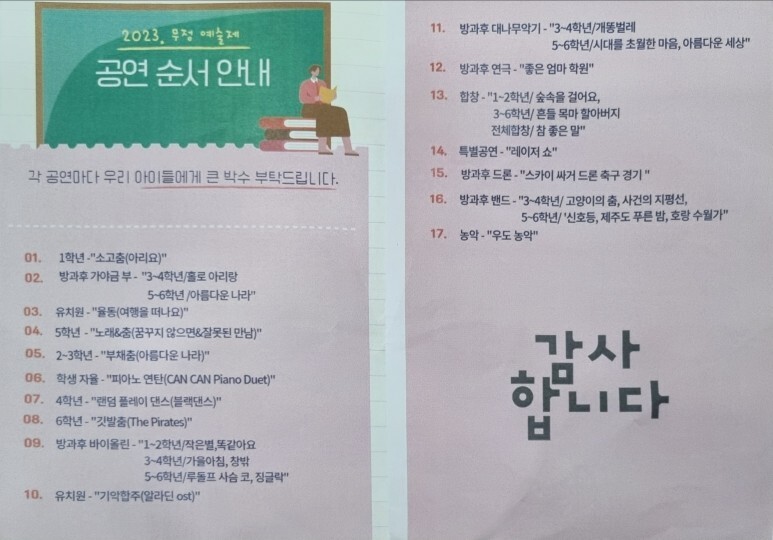 2023. 무정 예술제
공연 순서 안내
각 공연마다 우리 아이들에게 큰 박수 부탁드립니다.
01. 1학년 -"소고춤(아리요)"
02. 방과후 가야금 부 - "3~4학년/홀로 아리랑
5~6학년 /아름다운 나라"
03. 유치원 - "율동(여행을 떠나요)"
04. 5학년 - "노래&춤(꿈꾸지 않으면&잘못된 만남)"
05. 2~3학년 - "부채춤(아름다운 나라)"
06. 학생 자율 - "피아노 연탄(CAN CAN Piano Duet)"
07. 4학년 - "랜덤 플레이 댄스(블랙댄스)"
08. 6학년 - "깃발춤(The Pirates)"
09. 방과후 바이올린 - "1~2학년/작은별,똑같아요
3~4학년/가을아침, 창밖
5~6학년/루돌프 사슴 코, 징글락"
10. 유치원 - "기악합주(알라딘 ost)"
11. 방과후 대나무악기 - "3~4학년/개똥벌레
5~6학년/시대를 초월한 마음, 아름다운 세상"
12. 방과후 연극 - "좋은 엄마 학원"
13. 합창 - "1~2학년/ 숲속을 걸어요,
3~6학년/ 흔들 목마 할아버지
전체합창/ 참 좋은 말"
14. 특별공연 - "레이저 쇼"
15. 방과후 드론 - "스카이 싸커 드론 축구 경기 "
16. 방과후 밴드 - "3~4학년/ 고양이의 춤, 사건의 지평선,
5~6학년/ '신호등, 제주도 푸른 밤, 호랑 수월가"
17. 농악 - "우도 농악"
감사
합니다